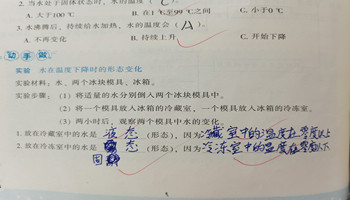 2. 当水处于固体状态时,水的温度( C )。
A. 大于100℃ B. 在1℃至99℃之间 C. 小于0℃
3. 水沸腾后,持续给水加热,水的温度会( A )。
A. 不再变化 B. 持续上升 C. 开始下降
动手做
实验 水在温度下降时的形态变化
实验材料:水、两个冰块模具、冰箱。
实验步骤:(1) 将适量的水分别倒入两个冰块模具中。
(2) 将一个模具放入冰箱的冷藏室,一个模具放入冰箱的冷冻室。
(3) 两小时后,观察两个模具中水的变化。
1. 放在冷藏室中的水是 液态 (形态),因为冷藏室中的温度在零度以上
2. 放在冷冻室中的水是 态 (形态),因为冷冻室中的温度在零度以下
固